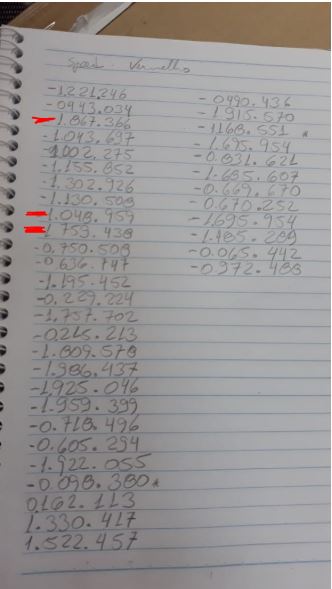 Speed. Vermelho
-1.221.246
-0943.034
-1.867.366
-1.043.697
-1002.275
-1.155.852
-1.302.926
-1.130.508
-1.048.959
-1.759.438
-0.750.508
-0.636.747
-1.195.452
-0.229.224
-1.757.702
-0.215.213
-1.809.578
-1.986.437
-1.925.046
-1.959.399
-0.718.496
-0.605.294
-1.922.055
-0.098.380.
0.162.113
1.330.417
1.522.457
-0990.436
-1.915.570
-1168.551.
-1.695.954
-0.831.621
-1.685.607
-0.669.670
-0.670.252
-1.695.954
-1.185.289
-0.065.442
-0.972.488